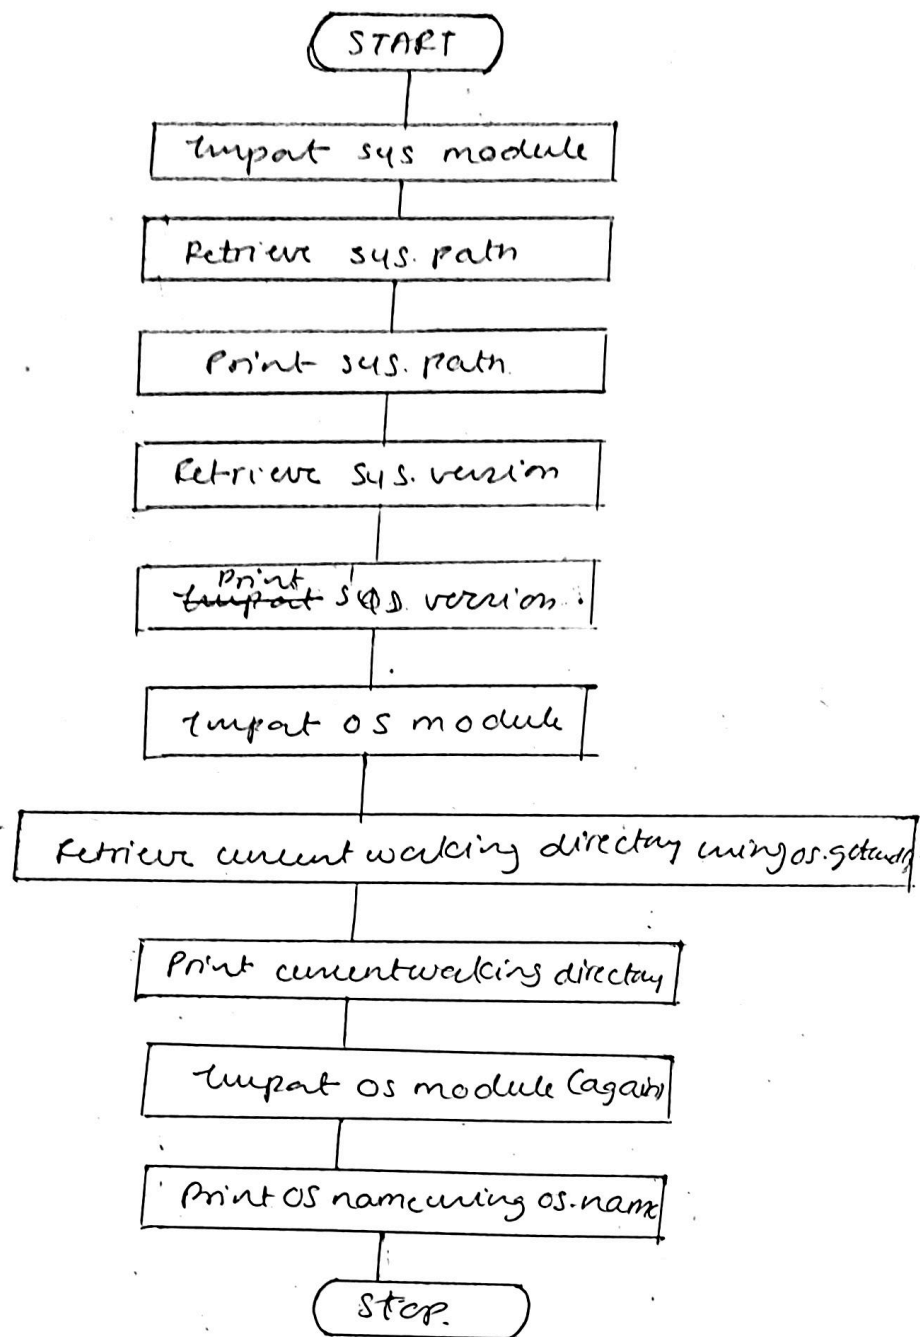 START
Import sys module
Retrieve sys.path
Print sys.path
Retrieve sys.version
Print sys version.
Import OS module
Retrieve current working directory using os.getcwd()
Print current working directory
Import os module (again)
Print OS name using os.name
Stop.